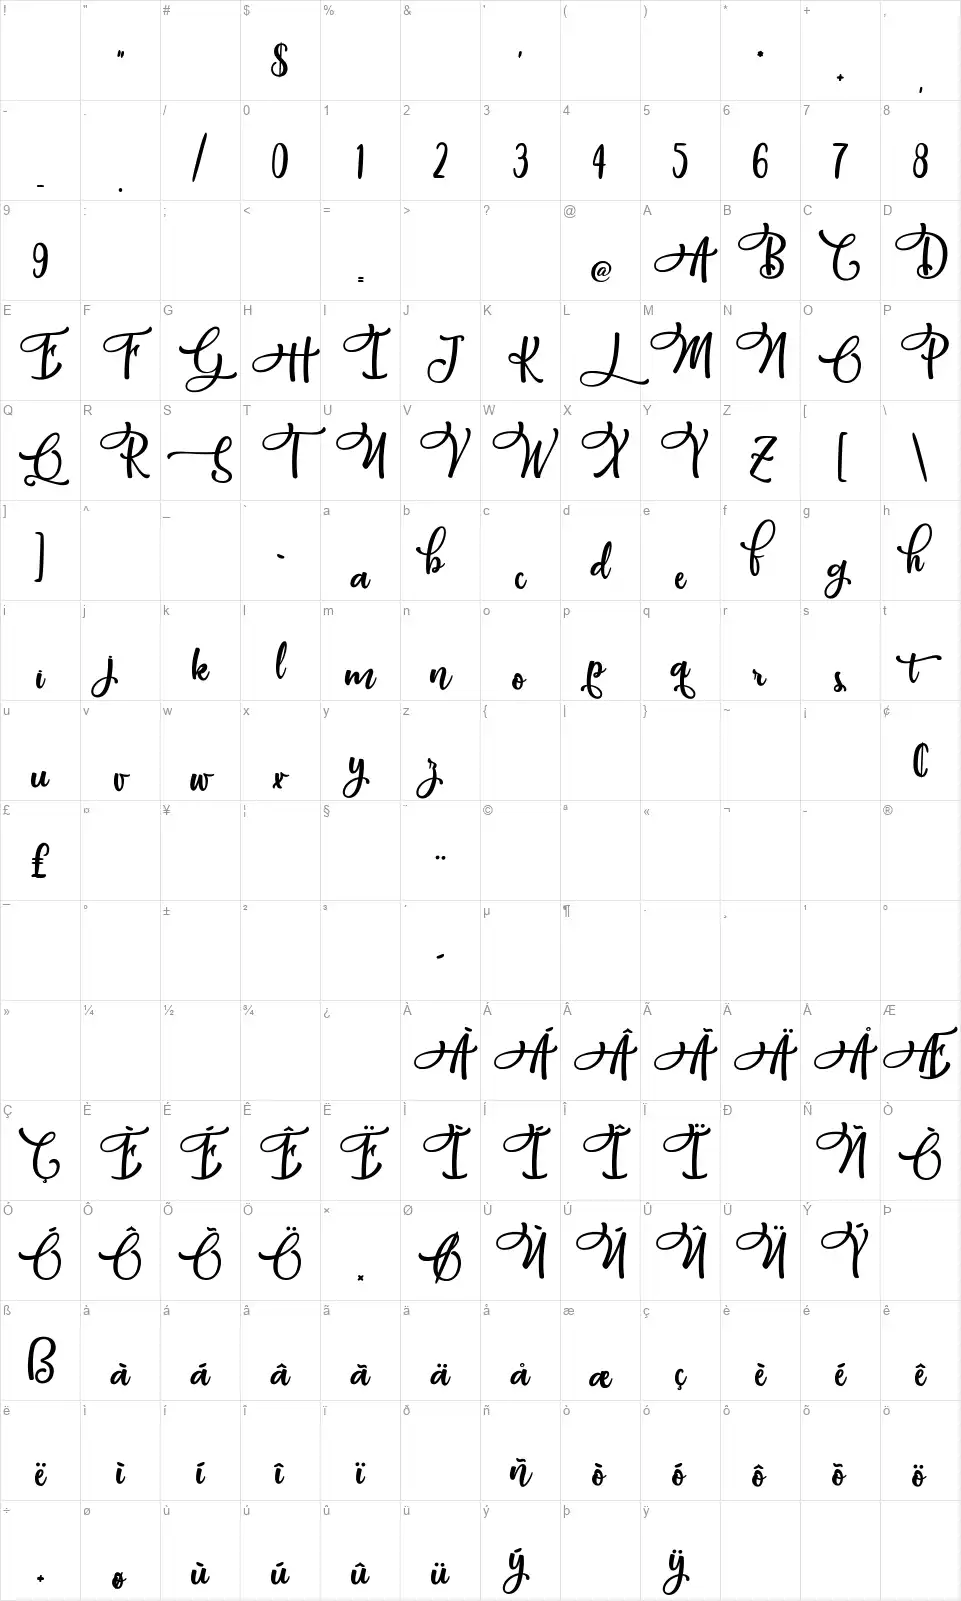 ! " # $ % & ' ( ) * + ,
" $ ' * + ,
- . / 0 1 2 3 4 5 6 7 8
- . / 0 1 2 3 4 5 6 7 8
9 : ; < = > ? @ A B C D
9 = @ A B C D
E F G H I J K L M N O P
E F G H I J K L M N O P
Q R S T U V W X Y Z [ \
Q R S T U V W X Y Z [ \
] ^ _ ` a b c d e f g h
] ` a b c d e f g h
i j k l m n o p q r s t
i j k l m n o p q r s t
u v w x y z { | } ~ ¡ ¢
u v w x y z ¢
£ ¤ ¥ ¦ § ¨ © ª « ¬ - ®
£ ¨
¯ ° ± ² ³ ´ µ ¶ · ¸ ¹ º
´
» ¼ ½ ¾ ¿ À Á Â Ã Ä Å Æ
À Á Â Ã Ä Å Æ
Ç È É Ê Ë Ì Í Î Ï Ð Ñ Ò
Ç È É Ê Ë Ì Í Î Ï Ñ Ò
Ó Ô Õ Ö × Ø Ù Ú Û Ü Ý Þ
Ó Ô Õ Ö × Ø Ù Ú Û Ü Ý
ß à á â ã ä å æ ç è é ê
ß à á â ã ä å æ ç è é ê
ë ì í î ï ð ñ ò ó ô õ ö
ë ì í î ï ñ ò ó ô õ ö
÷ ø ù ú û ü ý þ ÿ
÷ ø ù ú û ü ý ÿ